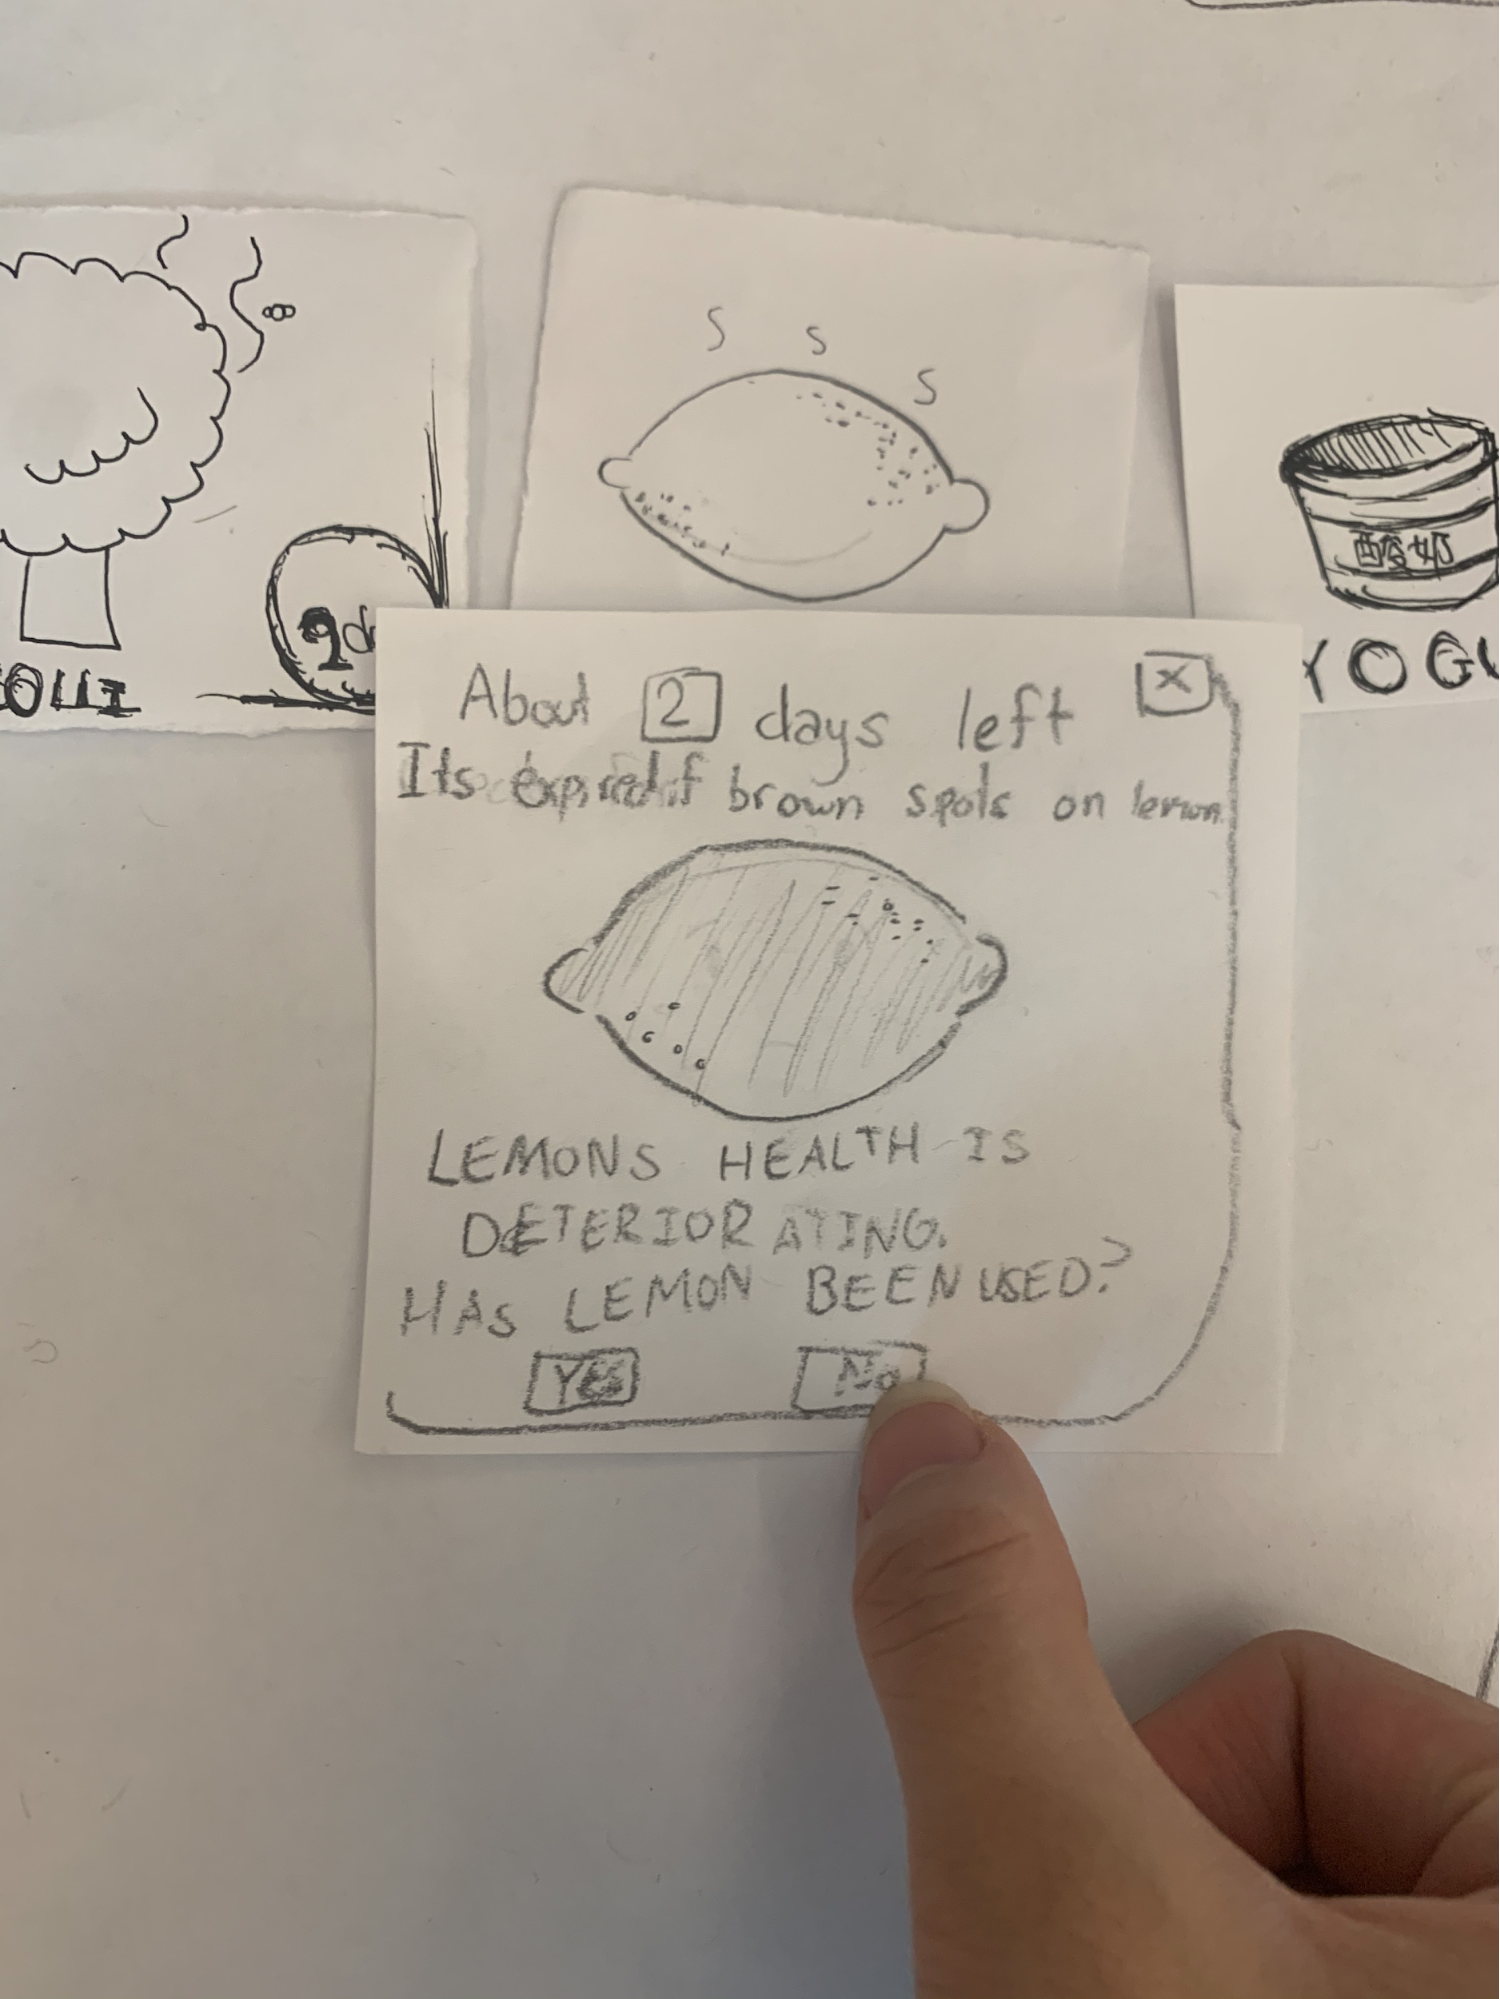 S S S
酸奶
9d
OLLI
YOGU
About 2 days left X
Its expired if brown spots on lemon
LEMONS HEALTH IS
DETERIORATING.
HAS LEMON BEEN USED?
YES No